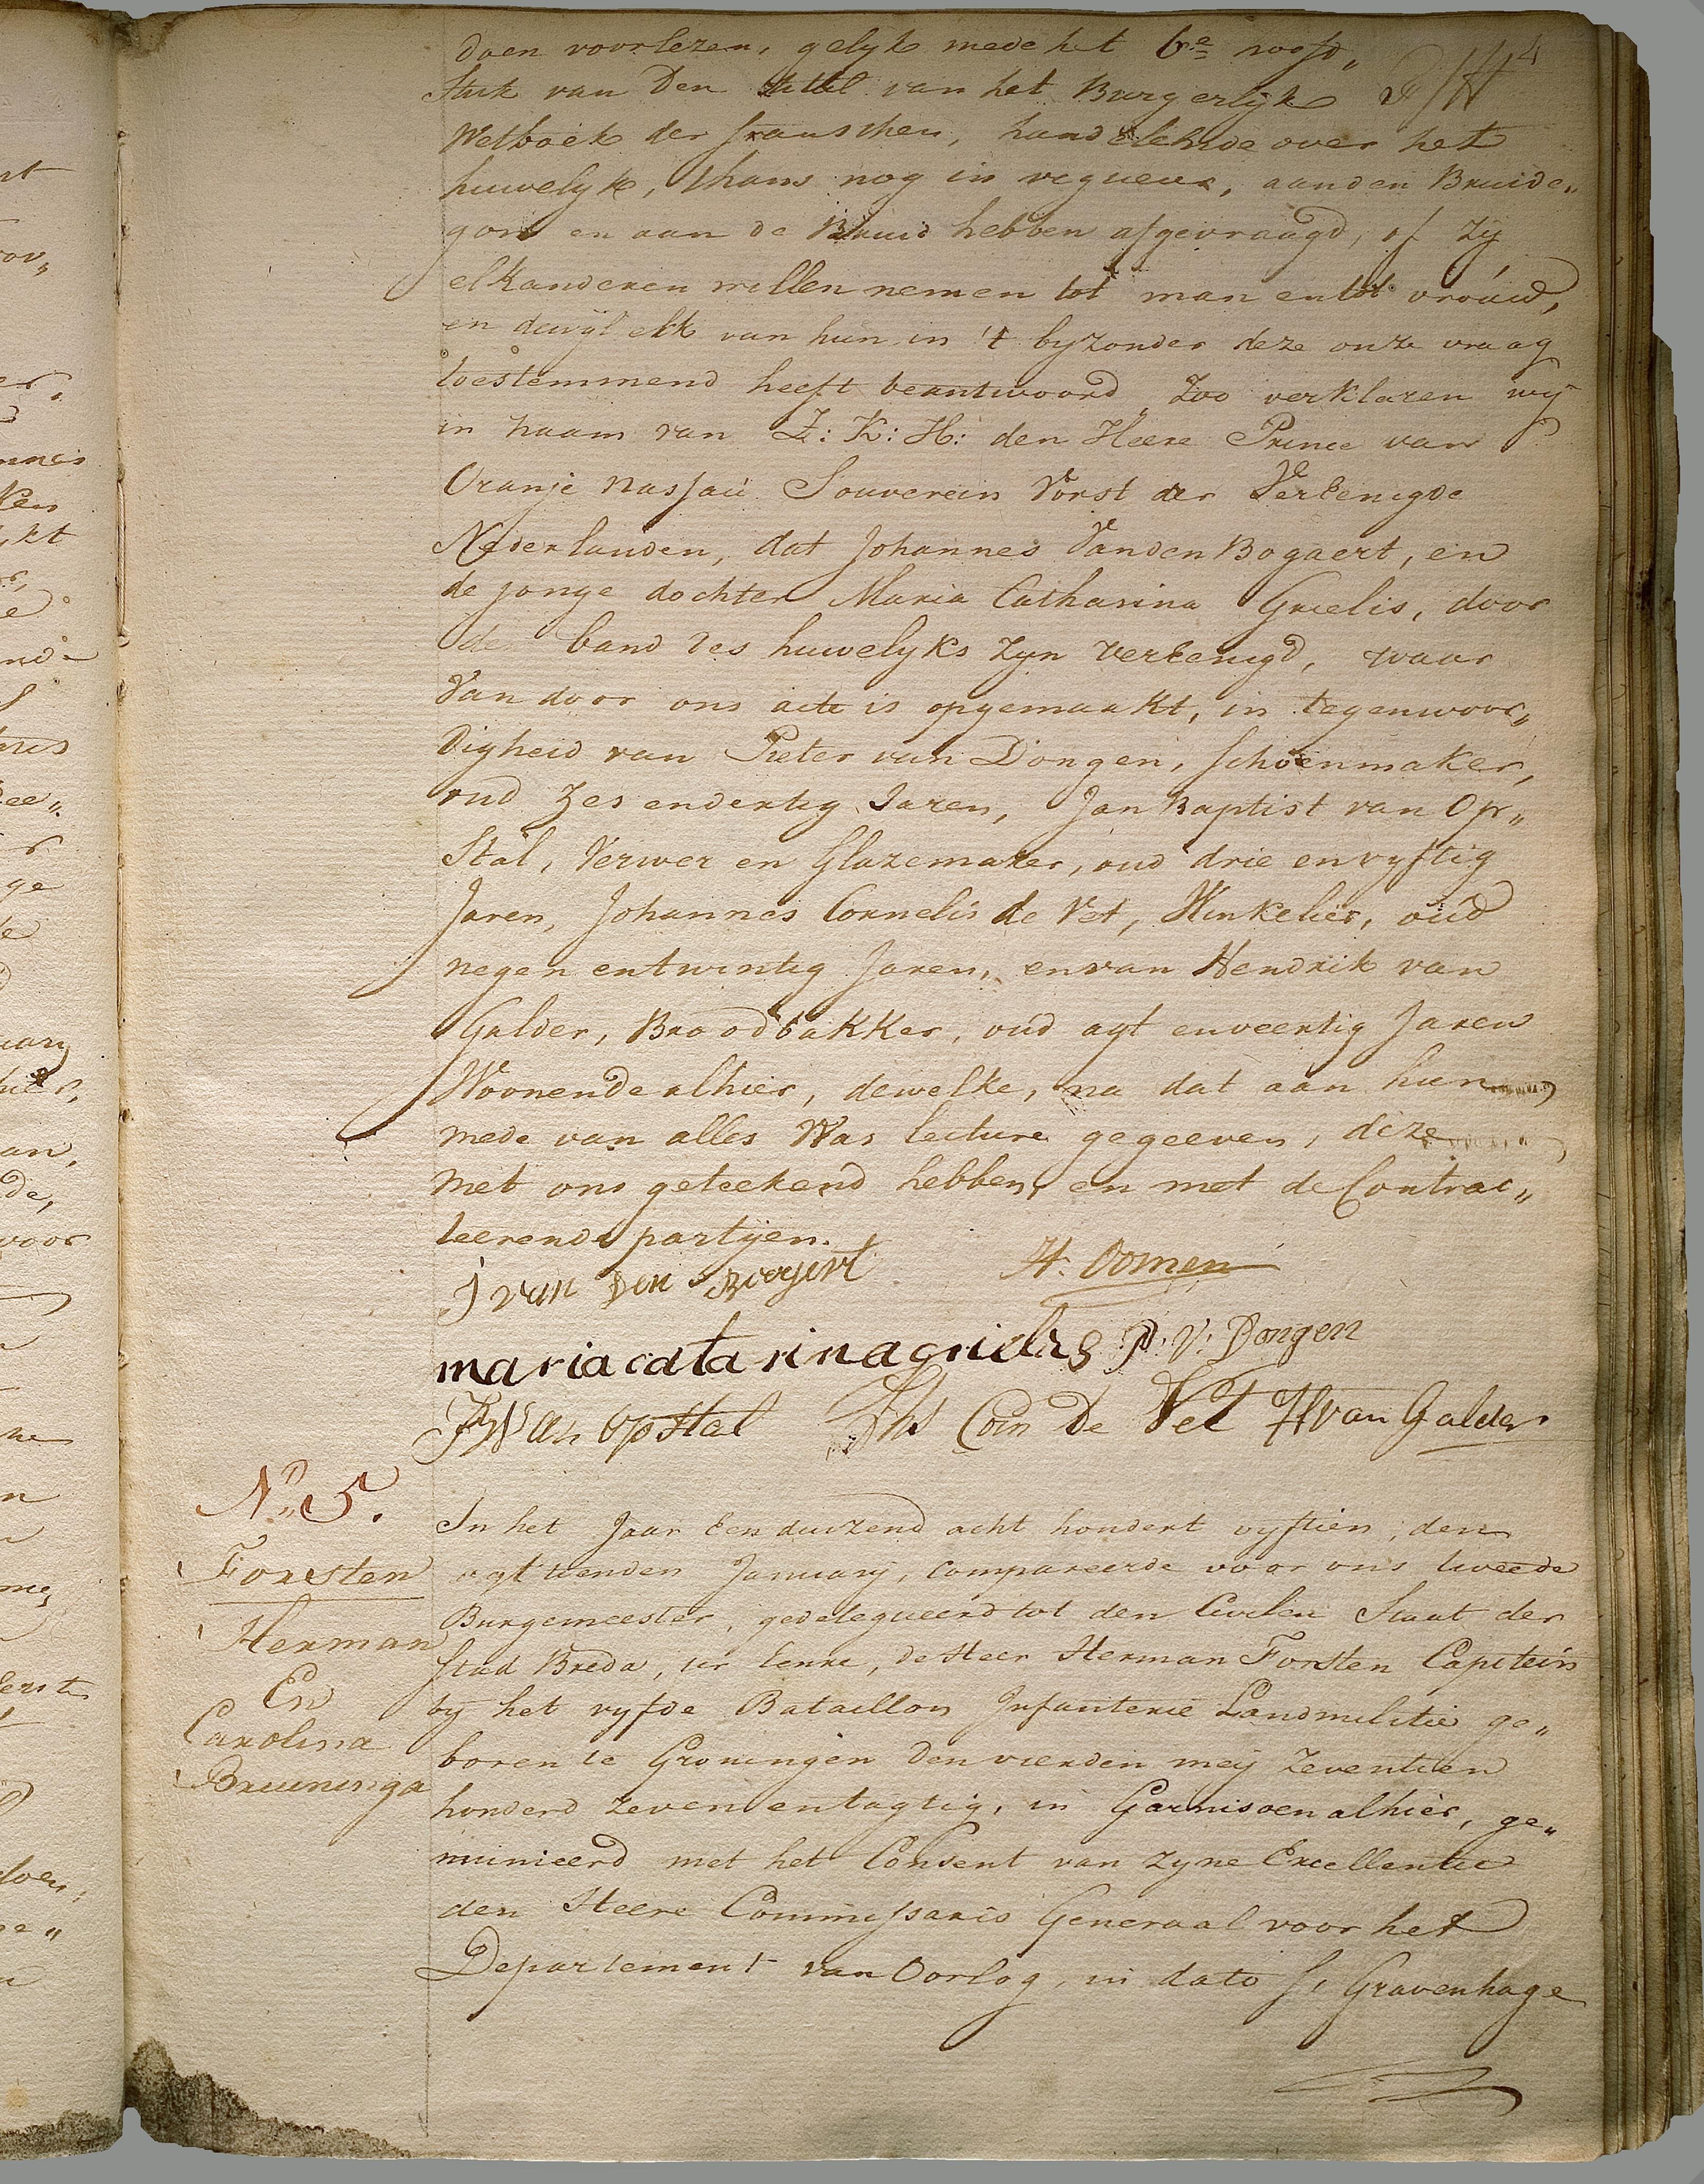 doen voorlezen, gelyk mede het 6e hoofd„
Stuk van Den tittel van het Burgerlijke
4
Wetboek der franschen, handelende over het
huwelyk, thans nog in vigueur, aan den Bruide„
gom en aan de Bruid hebben afgevraagd, of zij
elkanderen willen nemen tot man en tot vrouw,
en dewijl elk van hun in 't byzonder deze onze vraag
toestemmend heeft beantwoord, Zoo verklaren wij
in naam van Z: K: H: den Heere Prince van
Oranje Nassau Souverein Vorst der Vereenigde
Nederlanden, dat Johannes Vanden Bogaert, en
de jonge dochter Maria Catharina Grielis, door
den band des huwelyks zyn vereenigd, waar
Van door ons acte is opgemaakt, in tegenwoor„
Digheid van Pieter van Dongen, schoenmaker,
oud Zes endertig Jaren, Jan Baptist van Op„
Stal, Verwer en Glazemaker, oud drie en vyftig
Jaren, Johannes Cornelis de Vet, Winkelier, oud
negen entwintig Jaren, en van Hendrik van
Galder, Broodbakker, oud agt enveertig Jaren
Woonende alhier, dewelke, na dat aan hun
mede van alles Was lecture gegeeven, deze
met ons geteekend hebben, en met de Contrac„
teerende partijen.
J van Den Boogert H. Oomen
maria catarina grielis P. V. Dongen
JB Van Opstal Johs Corn De Vet H van Galder
No 5.
Forsten
Herman
En
Carolina
Breuninga
In het Jaar Een duizend acht hondert vyftien, den
agttienden January, compareerde voor ons tweede
Burgemeester, gedelegueerd tot den Civilen Staat der
Stad Breda, ter Eenre, de Heer Herman Forsten Capitein
by het vyfde Bataillon Infanterie Landmilitie ge„
boren te Groningen Den vierden meij Zeventien
honderd Zeven entagtig, in Garnisoen alhier, ge„
munieerd met het Consent van Zyne Excellentie
den Heere Commissaris Generaal voor het
Departement van Oorlog, in dato S' Gravenhage